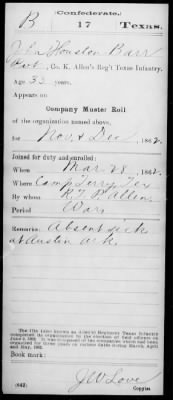 (Confederate.)
B 17 Texas.
Jno Houston Barr
Pvt, Co. K, Allen's Reg't Texas Infantry.
Age 33 years.
Appears on
Company Muster Roll
of the organization named above,
for Nov & Dec, 1862.
Joined for duty and enrolled:
When Mar 28, 1862.
Where Camp Terry, Tex
By whom R. T. P. Allen
Period War
Remarks: Absent sick
at Austin Ark.
The 17th (also known as Allen's) Regiment Texas Infantry
Book mark:
(642) J W Love
Copyist.